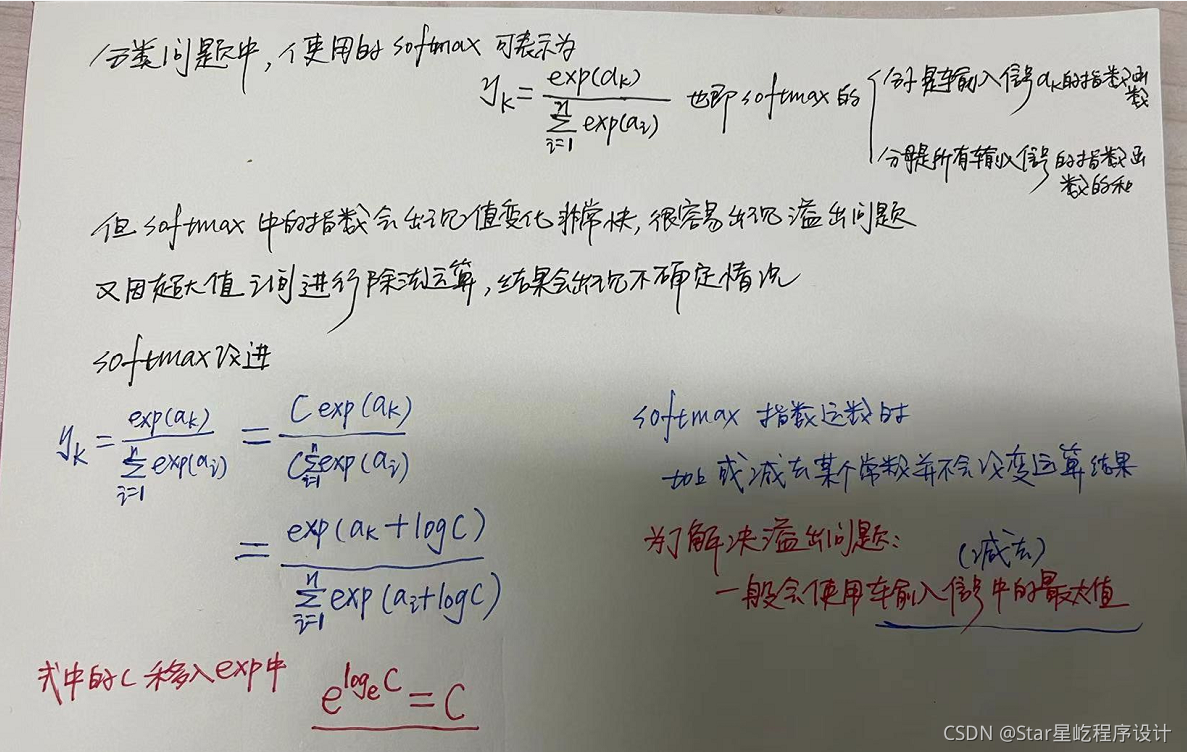 分类问题中,使用的softmax可表示为
y_k = exp(a_k) / Σ_{i=1}^{n} exp(a_i) 也即softmax的
分子是输入信号a_k的指数函数
分母是所有输入信号的指数函数的和
但softmax中的指数会出现值变化非常快,很容易出现溢出问题
又因超大值之间进行除法运算,结果会出现不确定情况
softmax改进
y_k = exp(a_k) / Σ_{i=1}^{n} exp(a_i) = C exp(a_k) / C Σ_{i=1}^{n} exp(a_i)
= exp(a_k + log C) / Σ_{i=1}^{n} exp(a_i + log C)
式中的C移入exp中
e^{log_e C} = C
softmax 指数运数时
加上或减去某个常数并不会改变运算结果
为了解决溢出问题:
(减去)
一般会使用输入信号中的最大值
CSDN @Star星屹程序设计